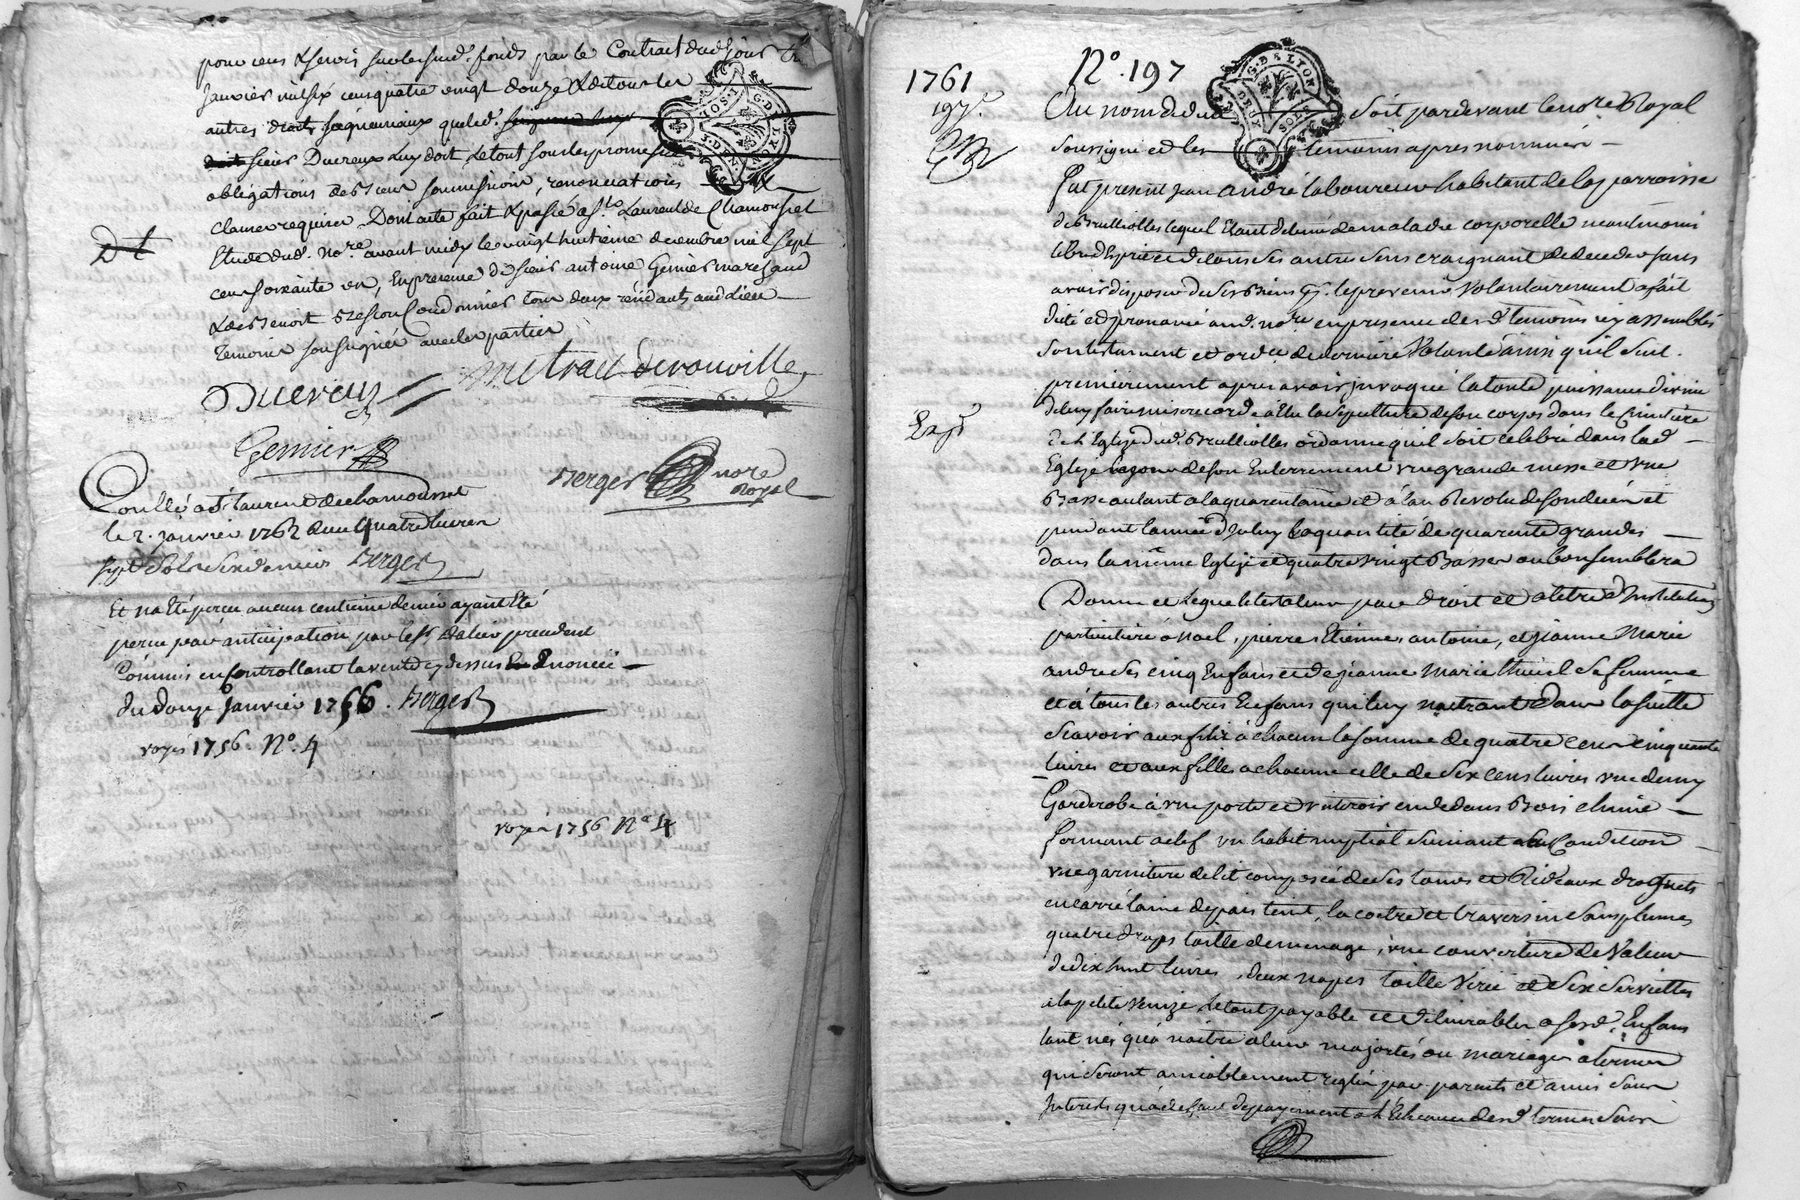 pour cens & servis sur lesd. fonds par le Contract dud. jour
janvier mil six cens quatre vingt douze & de tous les
autres droits seigneuriaux que led.
sieur Ducreux luy doit le tout sous les promesses
obligations des biens soumissions, renonciations
clauses requises. Dont acte fait & passé a St. Laurent de Chamousset
Etude dud. nore. avant midy le vingt huitieme decembre mil sept
cens soixante un, En presence de sieurs antoine Gernier marchand
& de Benoit cordonnier tous deux residants aud. Lieu
Temoins soussignés avec les parties
Ducreux
Gernier
Berger nore Royal
G. DE LYON
Controllé a St Laurent de chamousset
le 2. janvier 1762 Reçu quatre livres
sept sols six deniers Berger
Et na Eté perçu aucun centieme denier ayant Eté
perçu par anticipation par le sr. precedent
Commis en Controllant la vente cy dessus Enoncée
du douze Janvier 1756. Berger
voyés 1756. No. 4
voyés 1756 No 4
1761
197e.
No. 197
G. DE LYON
DEUX SOLS
Au nom de dieu soit pardevant le nore Royal
soussigné et les temoins apres nommés
Fut present Jean andré laboureur habitant de la parroisse
de Brullioles lequel Etant detenu de maladie corporelle neantmoins
libre d'Esprit et de tous ses autres sens craignant de deceder sans
avoir disposer de ses Biens le prevenir Volontairement a fait
dicté et prononcé aud. nore en presence desd. temoins icy assemblés
son testament et ord.ce de derniere Volonté ainsi quil suit.
Exp.
premierement apres avoir invoqué la toute puissance divine
de luy faire misericorde à Elu la sepulture de son corps dans le Cimetiere
de l'Eglise dud. Brullioles ordonne qu'il soit celebré dans lad.
Eglise le jour de son Enterrement une grande messe et une
Basse autant a la quarantaine et à l'an Revolu de son deces et
pendant l'année d'Iceluy la quantité de quarante grandes
dans la même Eglise et quatre vingt Basses ou bon semblera
Donne et Legue le testateur par droit et atitre d'Institution
particuliere à noel, pierre, Etienne, antoine, et jeanne Marie
andre ses cinq Enfans et de jeanne Marie sa femme
et à tous les autres Enfans qui luy naitront dans la suitte
scavoir aux fils à chacun la somme de quatre cens cinquante
livres et aux filles a chacune celle de six cens livres une
Garderobe à une porte et un tiroir au dedans Bois
fermant a clef un habit nuptial suivant sa Condition
une garniture de lit composée de ses tours et Rideaux
en carré laine depais teint, la coetre et traversin sans plumes
quatre draps toille de menage, une couverture de Valeur
de dix huit livres, deux napes toille et six serviettes
a la petite Venize le tout payable et delivrable a sesd. Enfans
tant nés qu'a naitre a leur majorités ou mariages a termes
qui seront amiablement reglés par parents et amis sans
Interets qu'a deffaut de payement a l'Echeance desd. termes sans